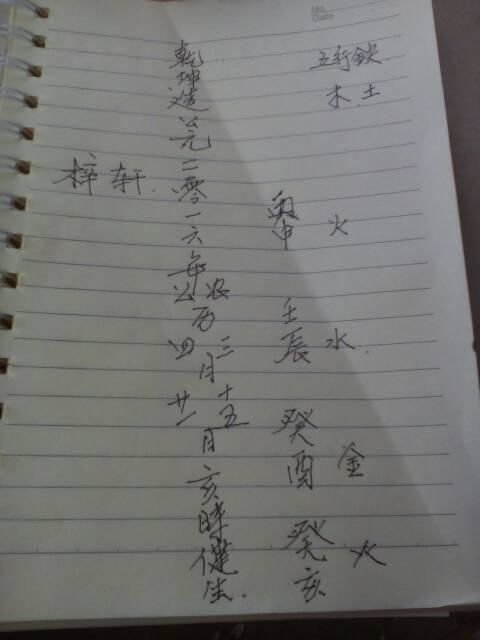 No.
Date
五行缺
木土
丙申 火
壬辰 水.
癸酉 金
癸亥 火
乾坤造公元二零一六年公农历四三月廿一十五日亥時健生.
梓轩.